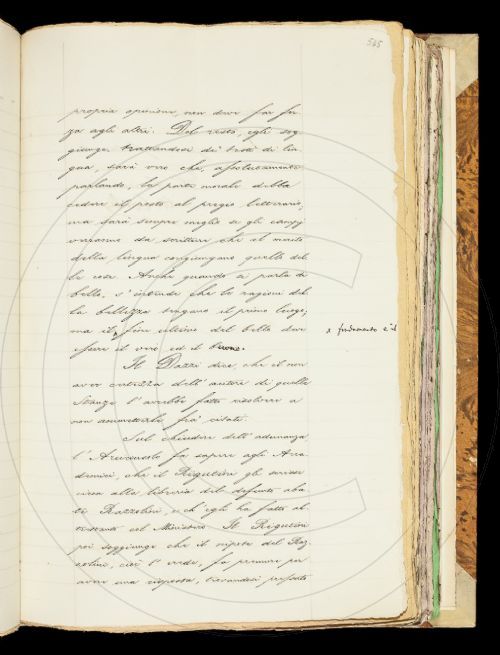 545
propria opinione, non deve far for-
za agli altri. Del resto, egli sog-
giunge, trattandosi di testi di lin-
gua, sarà vero che, assolutamente
parlando, la parte morale debba
cedere il posto al pregio letterario,
ma sarà sempre meglio se gli esempj
verranno da scritture che al merito
della lingua congiungano quello del-
le cose. Anche quando si parla di
bello, s'intende che le ragioni del-
la bellezza tengano il primo luogo,
ma il fine ultimo del bello deve
x fondamento e il
essere il vero ed il buono.
Il Dazzi dice, che il non
aver certezza dell'autore di quelle
Stanze l'avrebbe fatto risolvere a
non ammetterle fra' citati.
Sul chiudere dell'adunanza
l'Arciconsolo fa sapere agli Acca-
demici, che il Rigutini gli scrisse
circa alla libreria del defunto aba-
te Razzolini, e ch'egli ha fatto al-
col Ministero. Il Rigutini
poi soggiunge che il nipote del Raz-
zolini, cui l'erede, fa premure per
avere una risposta, trovandosi pressato